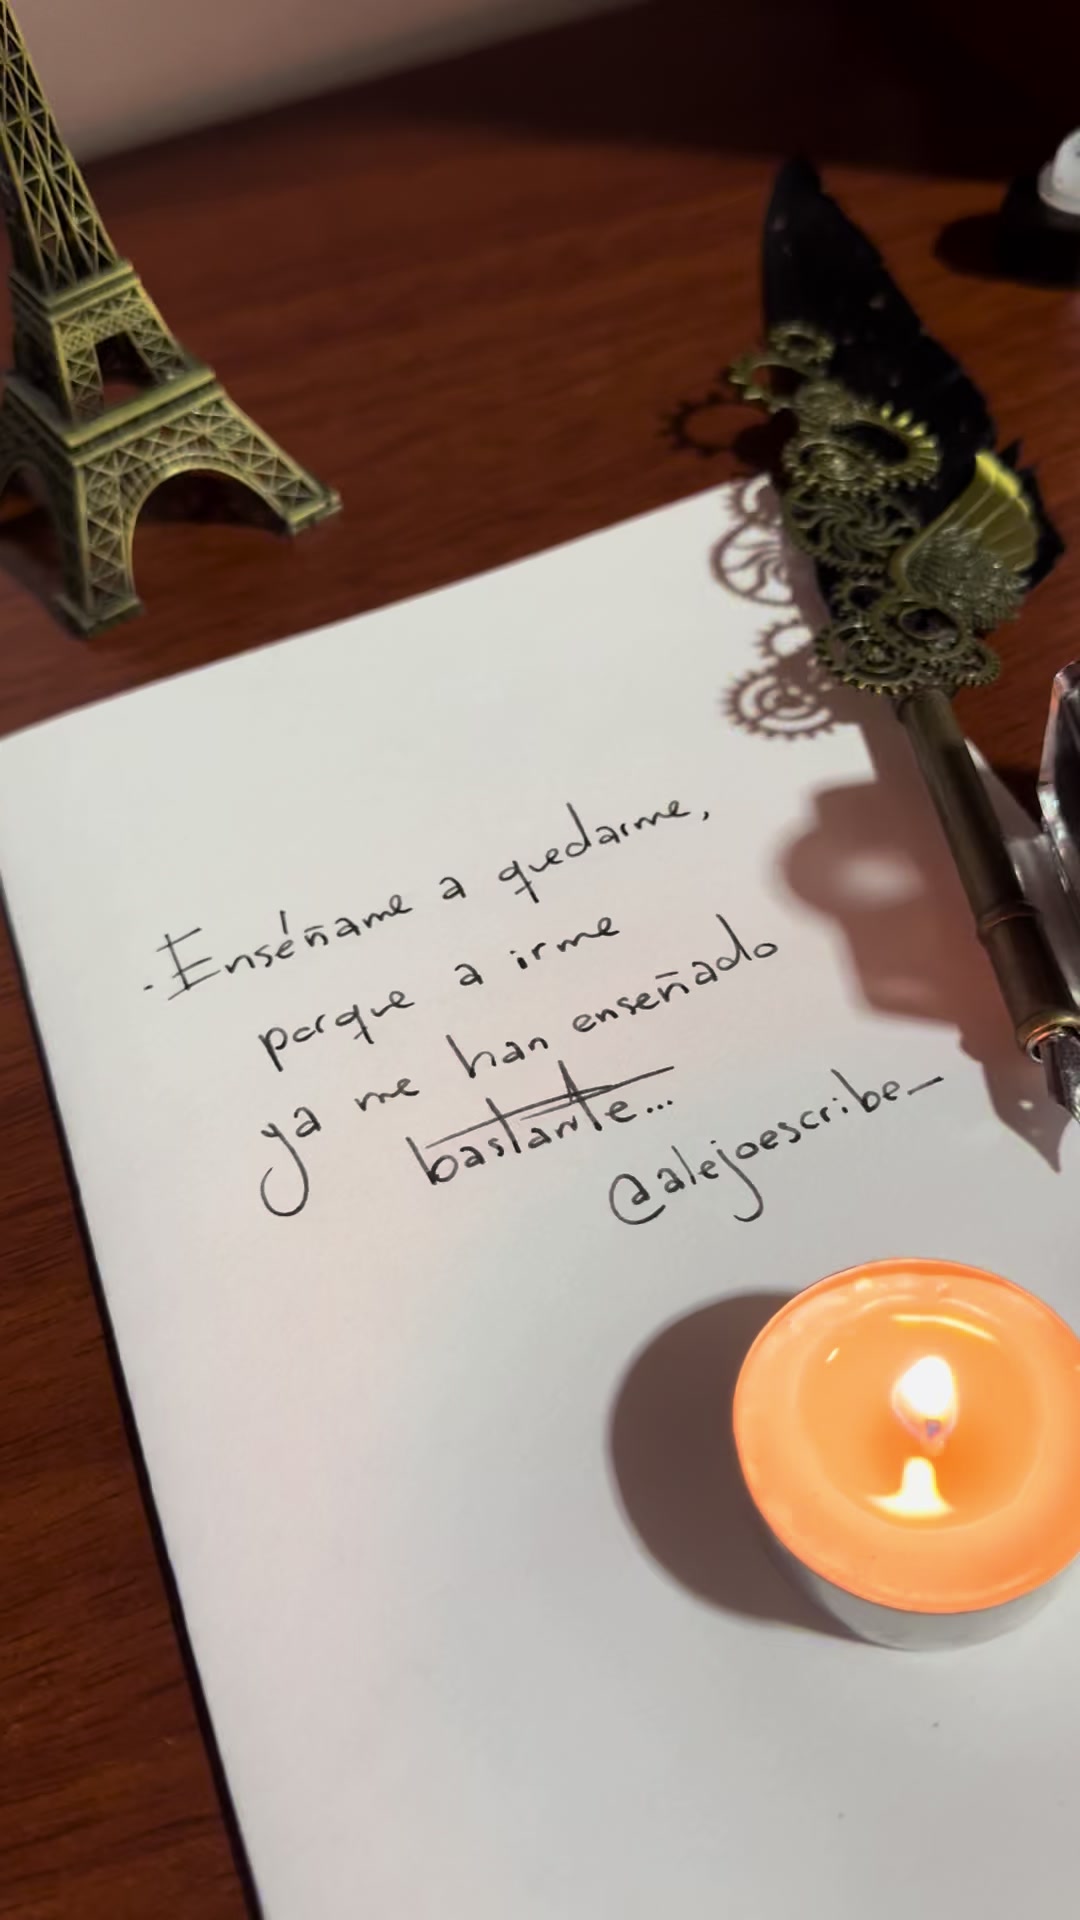 . Enséñame a quedarme,
porque a irme
ya me han enseñado
bastante...
@alejoescribe_